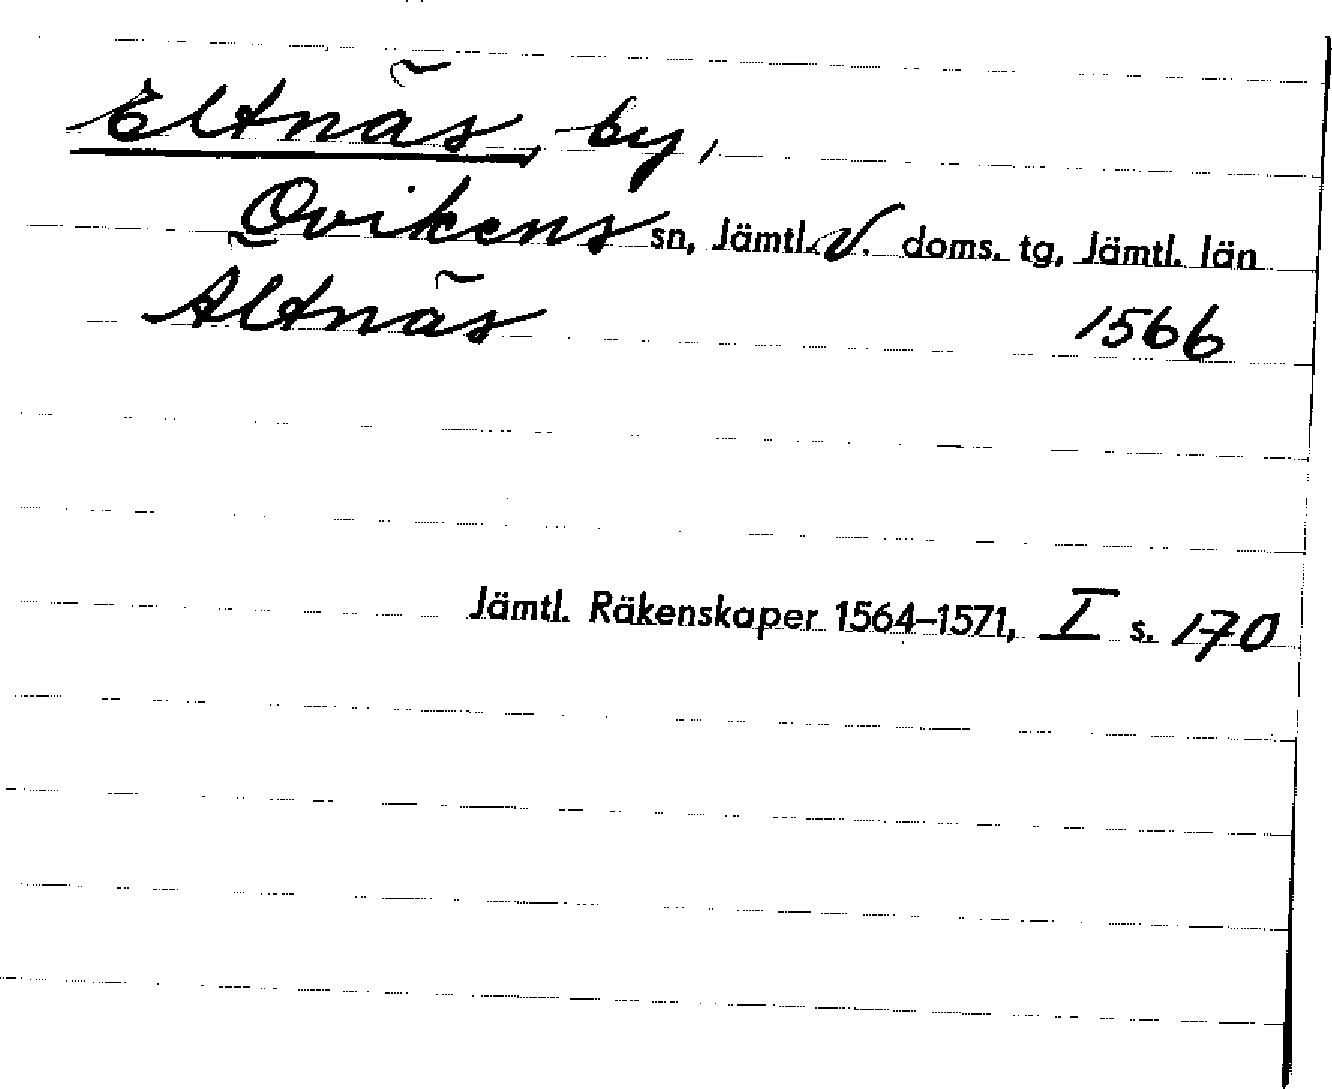 Eltnäs, by,
Ovikens sn, Jämtl. V. doms. tg, Jämtl. län
Altnäs 1566
Jämtl. Räkenskaper 1564–1571, I s. 170